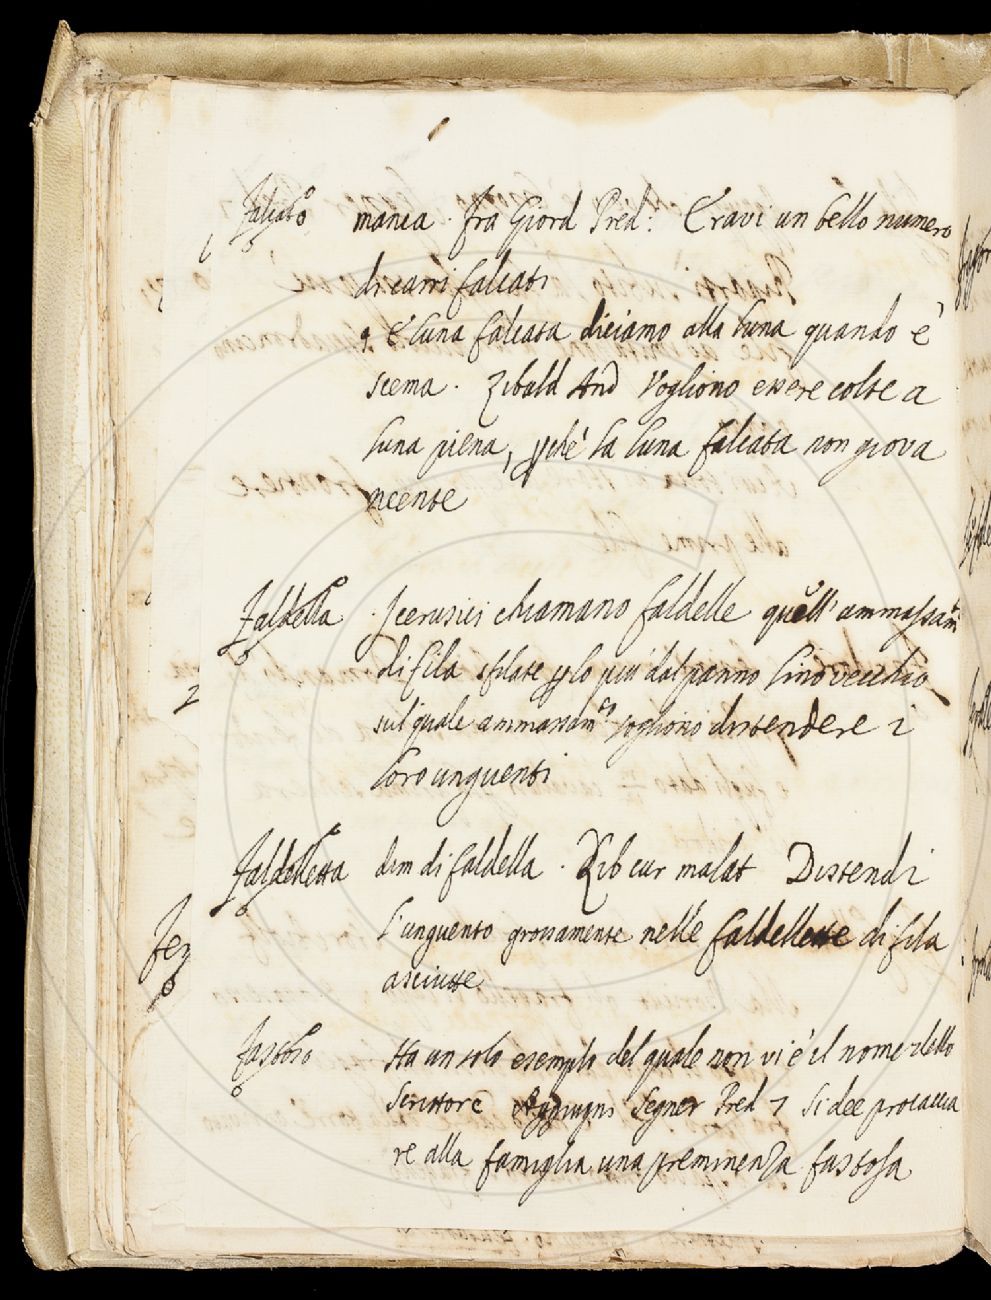 Falcato manca. fra Giord Pred: E ravi un bello numero
di carri falcati
E Luna falcata diciamo alla Luna quando è
scema. Zibald And Vogliono essere colte a
Luna piena, pchè la Luna falcata non giova
niente
Faldella. I cerusici chiamano faldelle quell' ammassam.to
di fila sfilate p lo più dal panno lino vecchio
2
sul quale ammassam.to sogliono distendere i
loro unguenti
Faldelletta dim di faldella. Zib cur malat Distendi
l'unguento grossamente nelle faldellette di fila
asciutte
Fastoso Ha un solo esempio del quale non vi è il nome dello
Scrittore Aggiugni Segner Pred 7 Si dee procaccia
re alla famiglia una preminenza fastosa